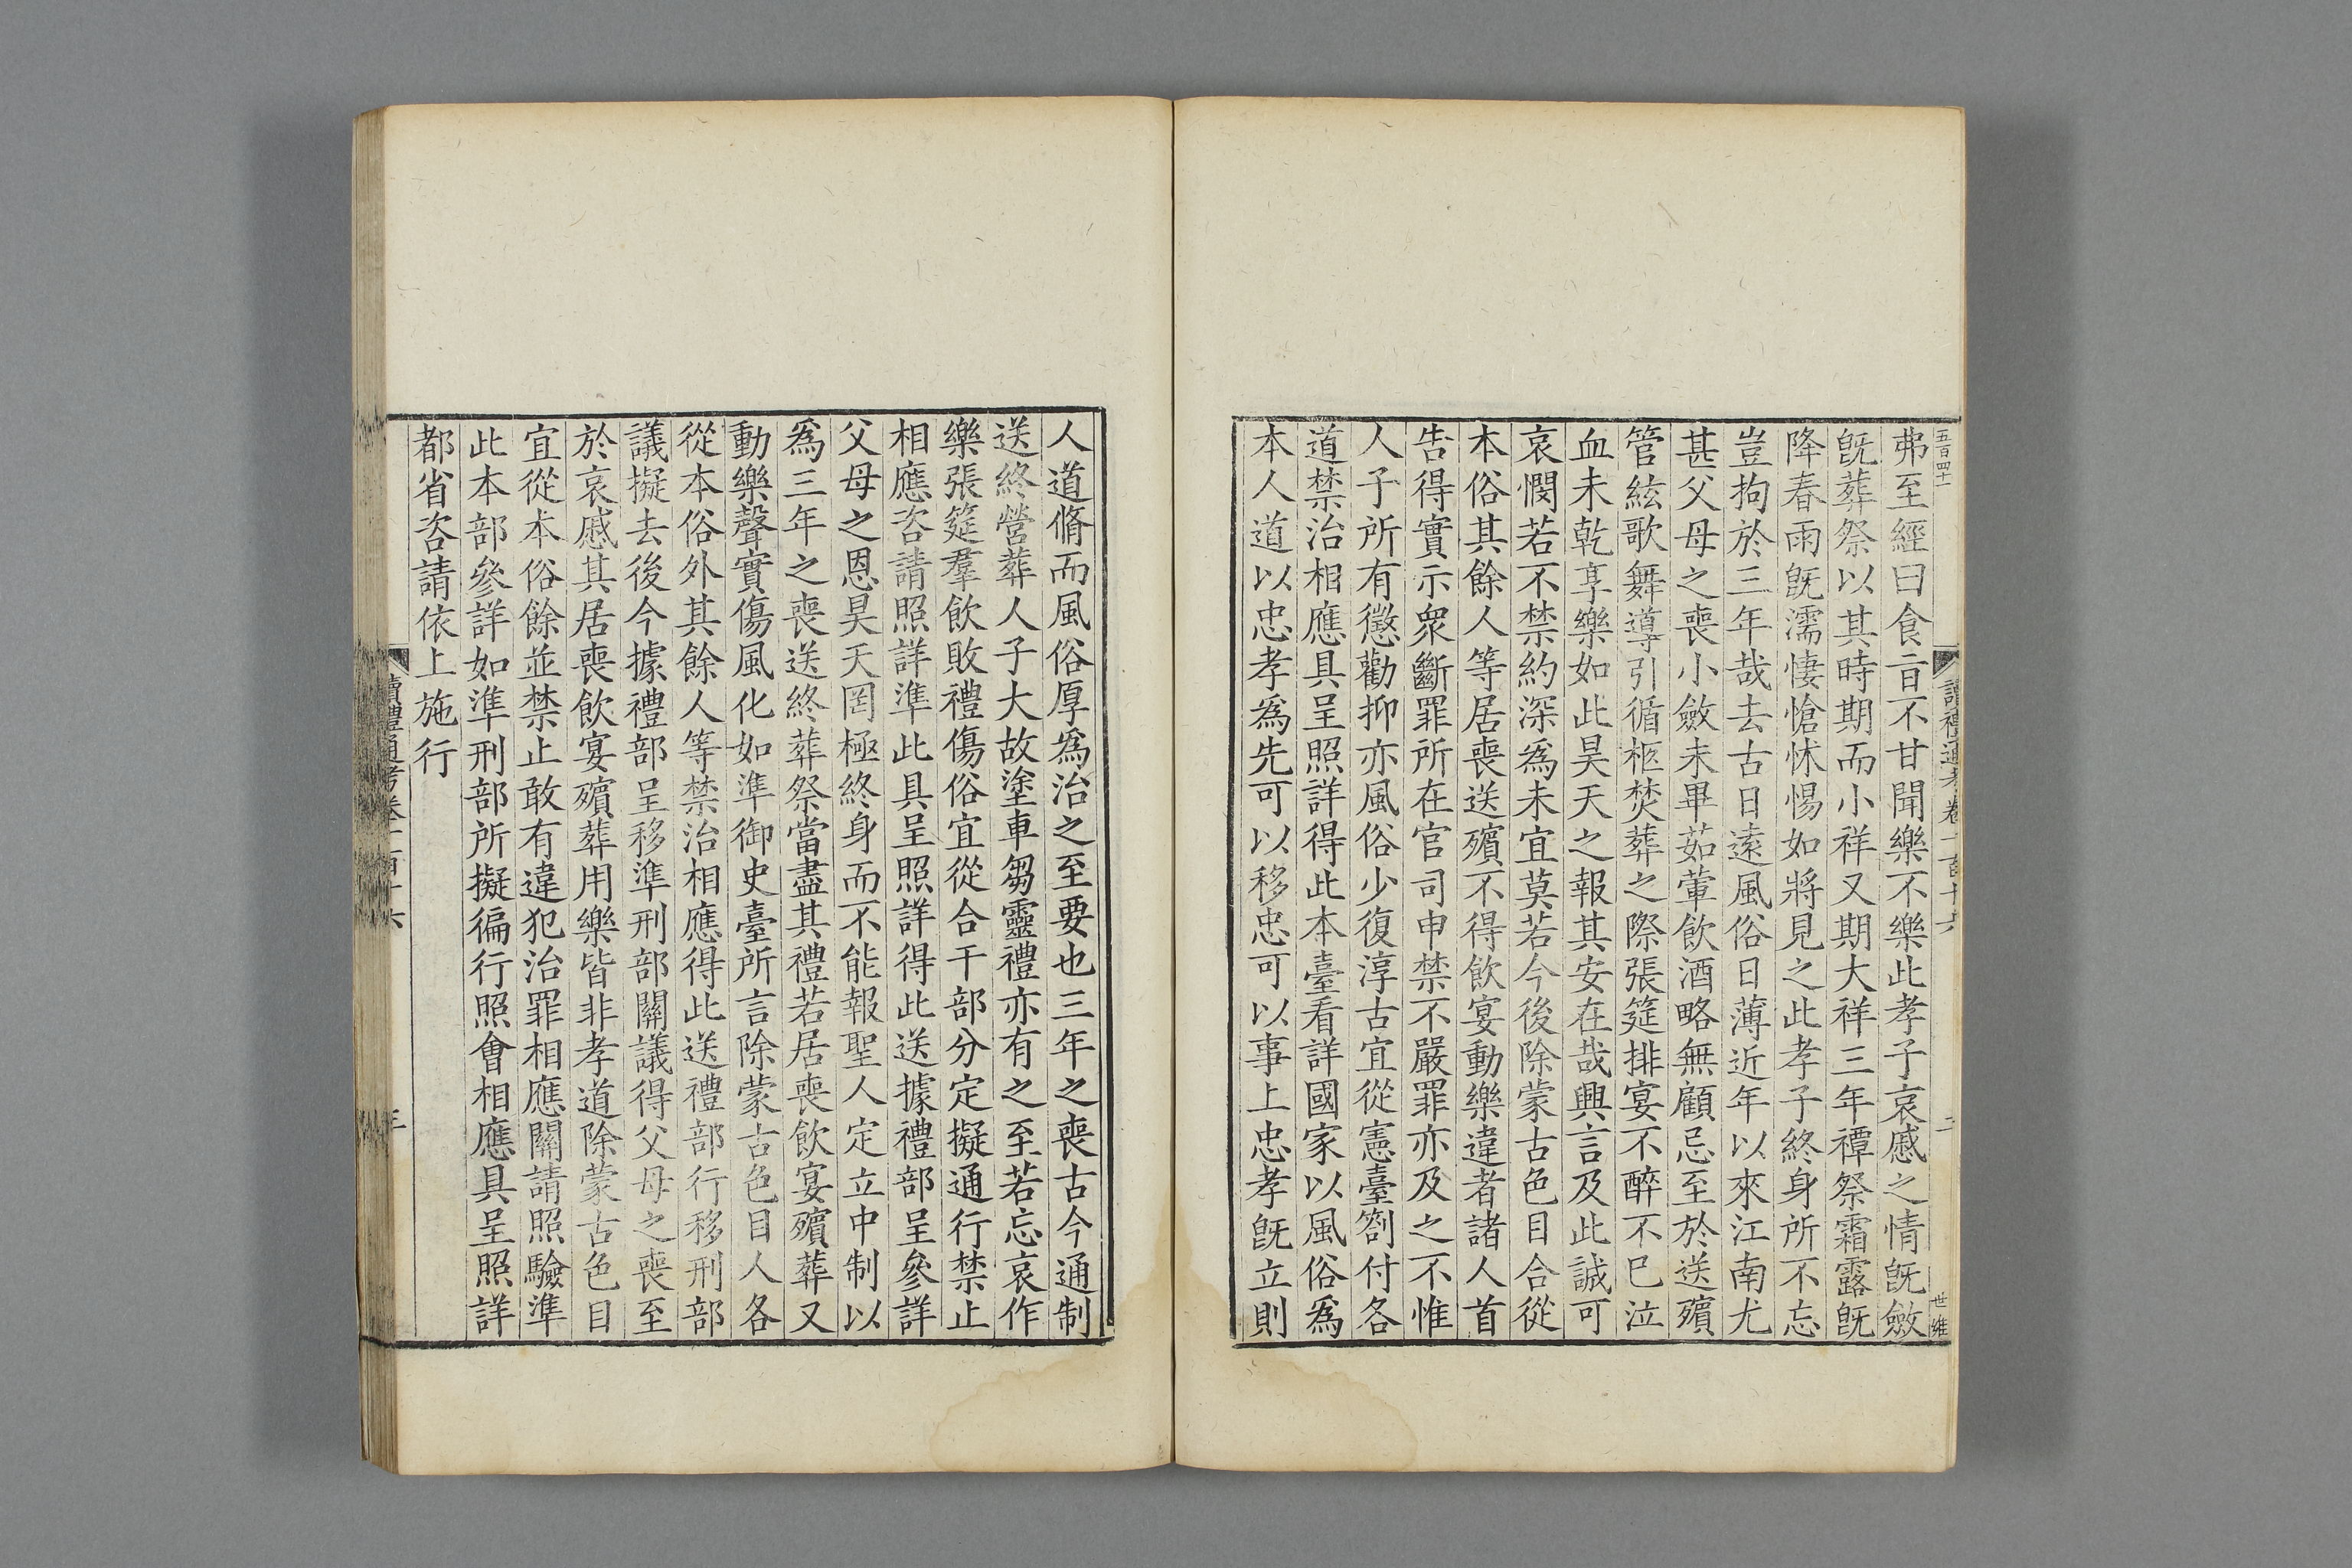 五百四十
讀禮通考卷一百十六
二
世維
弗至經曰食旨不甘聞樂不樂此孝子哀慼之情旣斂
旣葬祭以其時期而小祥又期大祥三年禫祭霜露旣
降春雨旣濡悽愴怵惕如將見之此孝子終身所不忘
豈拘於三年哉去古日遠風俗日薄近年以來江南尤
甚父母之喪小斂未畢茹葷飮酒略無顧忌至於送殯
管絃歌舞導引循柩焚葬之際張筵排宴不醉不巳泣
血未乾享樂如此昊天之報其安在哉興言及此誠可
哀憫若不禁約深爲未宜莫若今後除蒙古色目合從
本俗其餘人等居喪送殯不得飮宴動樂違者諸人首
告得實示衆斷罪所在官司申禁不嚴罪亦及之不惟
人子所有懲勸抑亦風俗少復淳古宜從憲臺劄付各
道禁治相應具呈照詳得此本臺看詳國家以風俗爲
本人道以忠孝爲先可以移忠可以事上忠孝旣立則
人道脩而風俗厚爲治之至要也三年之喪古今通制
送終營葬人子大故塗車芻靈禮亦有之至若忘哀作
樂張筵羣飮敗禮傷俗宜從合干部分定擬通行禁止
相應咨請照詳準此具呈照詳得此送據禮部呈參詳
父母之恩昊天罔極終身而不能報聖人定立中制以
爲三年之喪送終葬祭當盡其禮若居喪飮宴殯葬又
動樂聲實傷風化如準御史臺所言除蒙古色目人各
從本俗外其餘人等禁治相應得此送禮部行移刑部
議擬去後今據禮部呈移準刑部關議得父母之喪至
於哀慼其居喪飮宴殯葬用樂皆非孝道除蒙古色目
宜從本俗餘並禁止敢有違犯治罪相應關請照驗準
此本部參詳如準刑部所擬徧行照會相應具呈照詳
都省咨請依上施行
讀禮通考卷一百十六
三